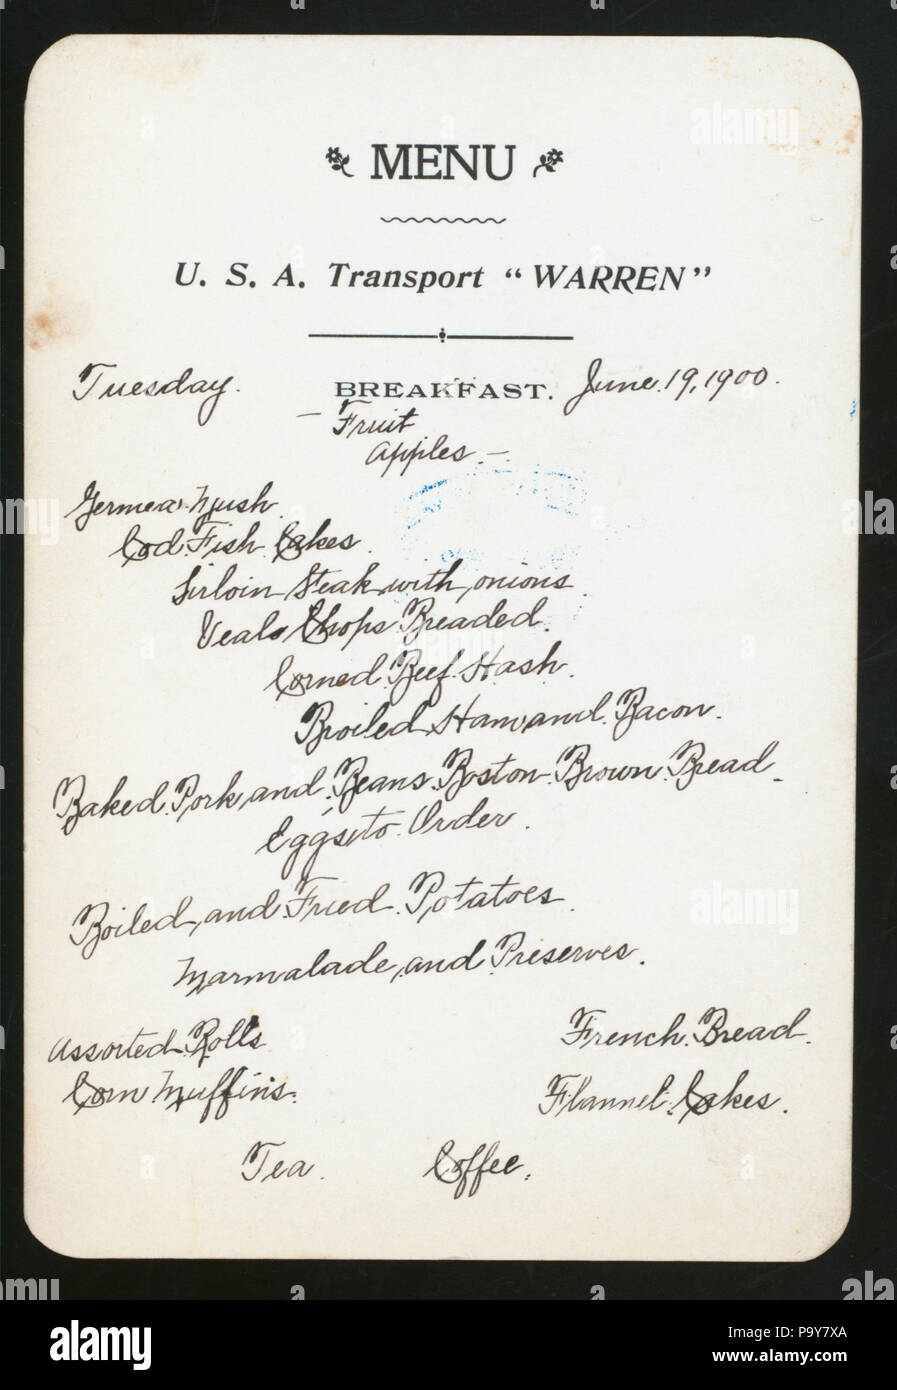 MENU
U. S. A. Transport "WARREN"
Tuesday. BREAKFAST. June 19, 1900.
- Fruit
Apples. -
Germea Mush.
Cod Fish Cakes.
Sirloin Steak with onions.
Veal Chops Breaded.
Corned Beef Hash.
Broiled Ham and Bacon.
Baked Pork and Beans Boston Brown Bread.
Eggs to Order.
Boiled and Fried Potatoes.
Marmalade and Preserves.
Assorted Rolls French Bread.
Corn Muffins. Flannel Cakes.
Tea. Coffee.
alamy
alamy
alamy
alamy
Image ID: P9Y7XA
www.alamy.com